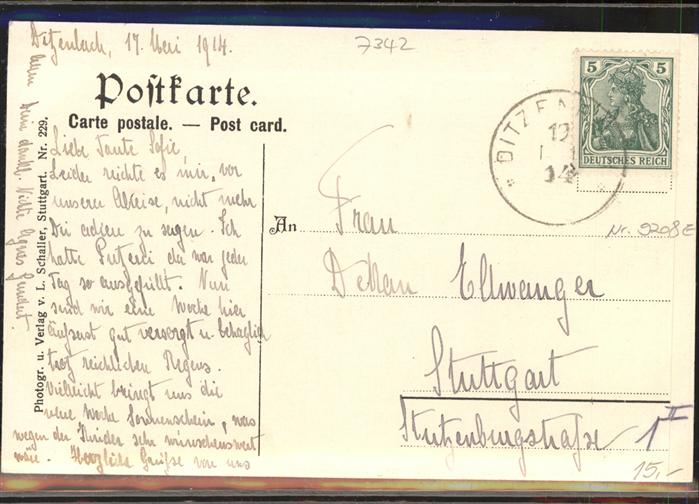 Ditzenbach, 17. Mai 1914.
7342
Postkarte.
Carte postale. — Post card.
Photogr. u. Verlag v. L. Schaller, Stuttgart. Nr. 229.
Liebe Tante Sofie,
Leider reichte es mir, vor
unserer Abreise, nicht mehr
Dir adieu zu sagen. Ich
hatte Putzerei da war jeder
Tag so ausgefüllt. Nun
sind wir eine Woche hier
äußerst gut versorgt u. behaglich
trotz reichlichen Regens.
Vielleicht bringt uns die
neue Woche Sonnenschein, was
wegen der Kinder sehr wünschenswert
wäre. Herzliche Grüße von uns
Deine dankb. Nichte Agnes
5 5
DEUTSCHES REICH
DITZENBACH
14
An
Frau
Dekan Ellwanger
Stuttgart
Stitzenburgstraße 1 II
Nr. 9208E
15,-